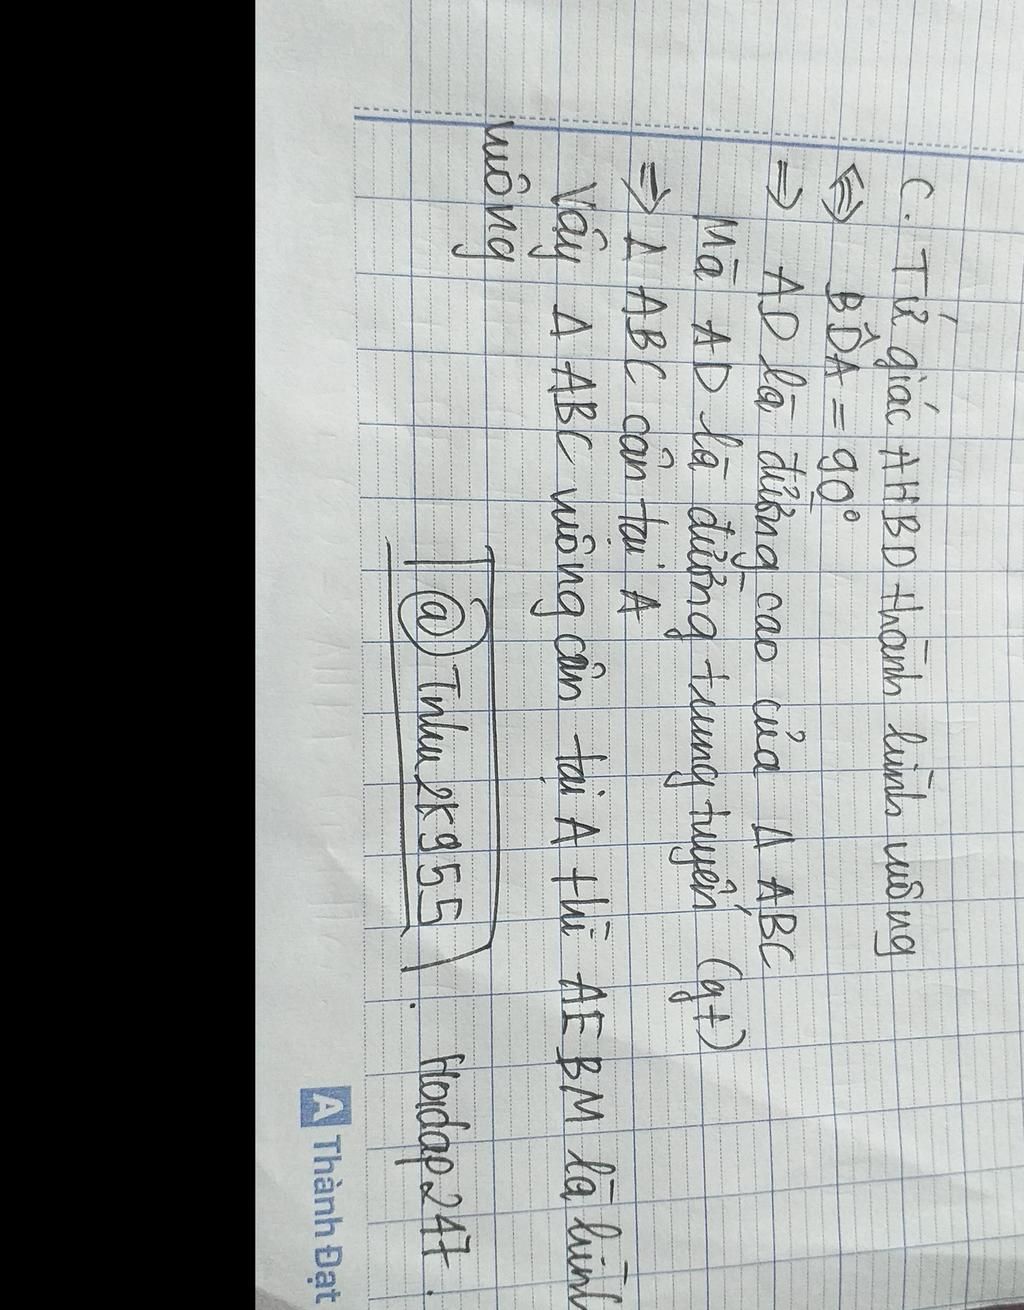 C. Tứ giác AHBD thành hình vuông
⇔ BD̂A = 90°
⇒ AD là đường cao của Δ ABC
Mà AD là đường trung tuyến (gt)
⇒ Δ ABC cân tại A
Vậy Δ ABC vuông cân tại A thì AEBM là hình
vuông
@Tnhu2k955. Hoidap247.
A Thành Đạt